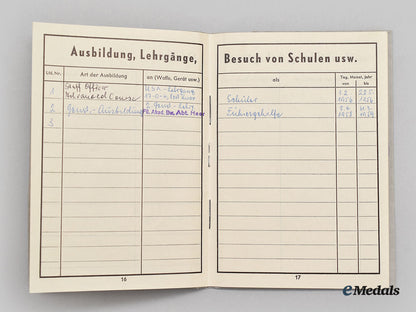 Ausbildung, Lehrgänge,
Lfd. Nr.
Art der Ausbildung
an (Waffe, Gerät usw.)
1
Staff Officer
Advanced Course
USA - Lehrgang
2
Genst. - Ausbildung
2. Genst. - Lehr.
Fü. Akad. Bw. Abt. Heer
3
16
Besuch von Schulen usw.
als
Tag, Monat, Jahr
von
bis
Schüler
1956
1956
1958
1959
17
eMedals